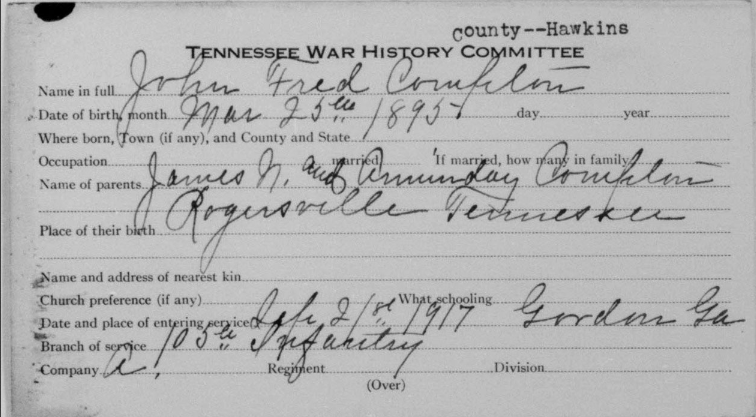 County--Hawkins
TENNESSEE WAR HISTORY COMMITTEE
Name in full John Fred Compton
Date of birth, month Mar 25th 1895 day year
Where born, Town (if any), and County and State
Occupation married If married, how many in family
Name of parents James N. and Amunday Compton
Rogersville Tennessee
Place of their birth
Name and address of nearest kin
Church preference (if any) What schooling
Date and place of entering service 21st 1917 Gordon Ga
Branch of service 105th Infantry
Company A. Regiment Division
(Over)